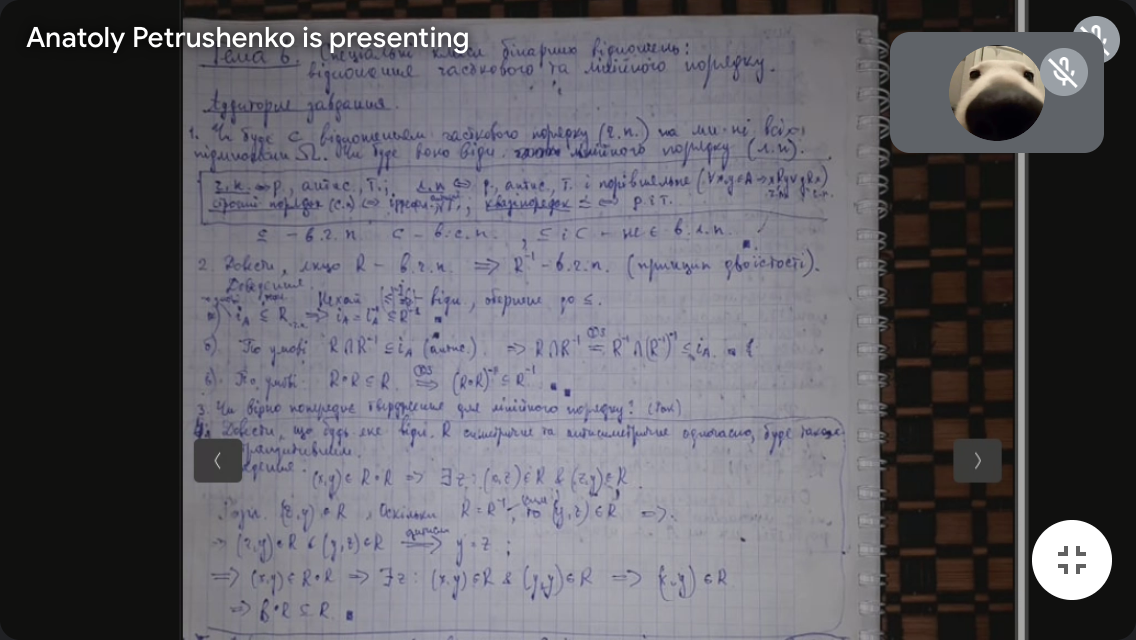 Anatoly Petrushenko is presenting
Тема 6. Спеціальні класи бінарних відношень:
відношення часткового та лінійного порядку.
Аудиторне завдання.
1. Чи буде ⊂ відношенням часткового порядку (ч.п.) на мн-ні всіх
підмножин Ω. Чи буде воно відн. лінійного порядку (л.п).
ч.п. ⇔ р., антис., т.; л.п ⇔ р., антис., т. і порівняльне (∀x,y∈A → xRy∨yRx)
строгий порядок (с.п) ⇔ ; квазіпорядок ≤ ⇔ р. і т.
⊆ – в.ч.п. ⊂ – в.с.п. , ⊆ і ⊂ – не є в.л.п.
2. Довести, якщо R – в.ч.п. ⇒ R⁻¹ – в.ч.п. (принцип двоїстості).
Доведення:
Нехай відн., обернене до ≤.
а) i_A ⊆ R ⇒ i_A = i_A⁻¹ ⊆ R⁻¹
б) По умові R∩R⁻¹ ⊆ i_A (антис.) ⇒ R∩R⁻¹ = R⁻¹∩(R⁻¹)⁻¹ ⊆ i_A.
в) По умові R∘R ⊆ R ⇒ (R∘R)⁻¹ ⊆ R⁻¹
3. Чи вірно попереднє твердження для лінійного порядку? (Так)
4. Довести, що будь яке відн. R симетричне та антисиметричне одночасно, буде також
транзитивним.
(x,y) ∈ R∘R ⇒ ∃z : (x,z) ∈ R & (z,y) ∈ R.
(z,y) ∈ R, Оскільки R = R⁻¹, то (y,z) ∈ R ⇒
⇒ (z,y) ∈ R & (y,z) ∈ R ⇒ y = z ;
⇒ (x,y) ∈ R∘R ⇒ ∃z : (x,y) ∈ R & (y,y) ∈ R ⇒ (x,y) ∈ R
⇒ R∘R ⊆ R.